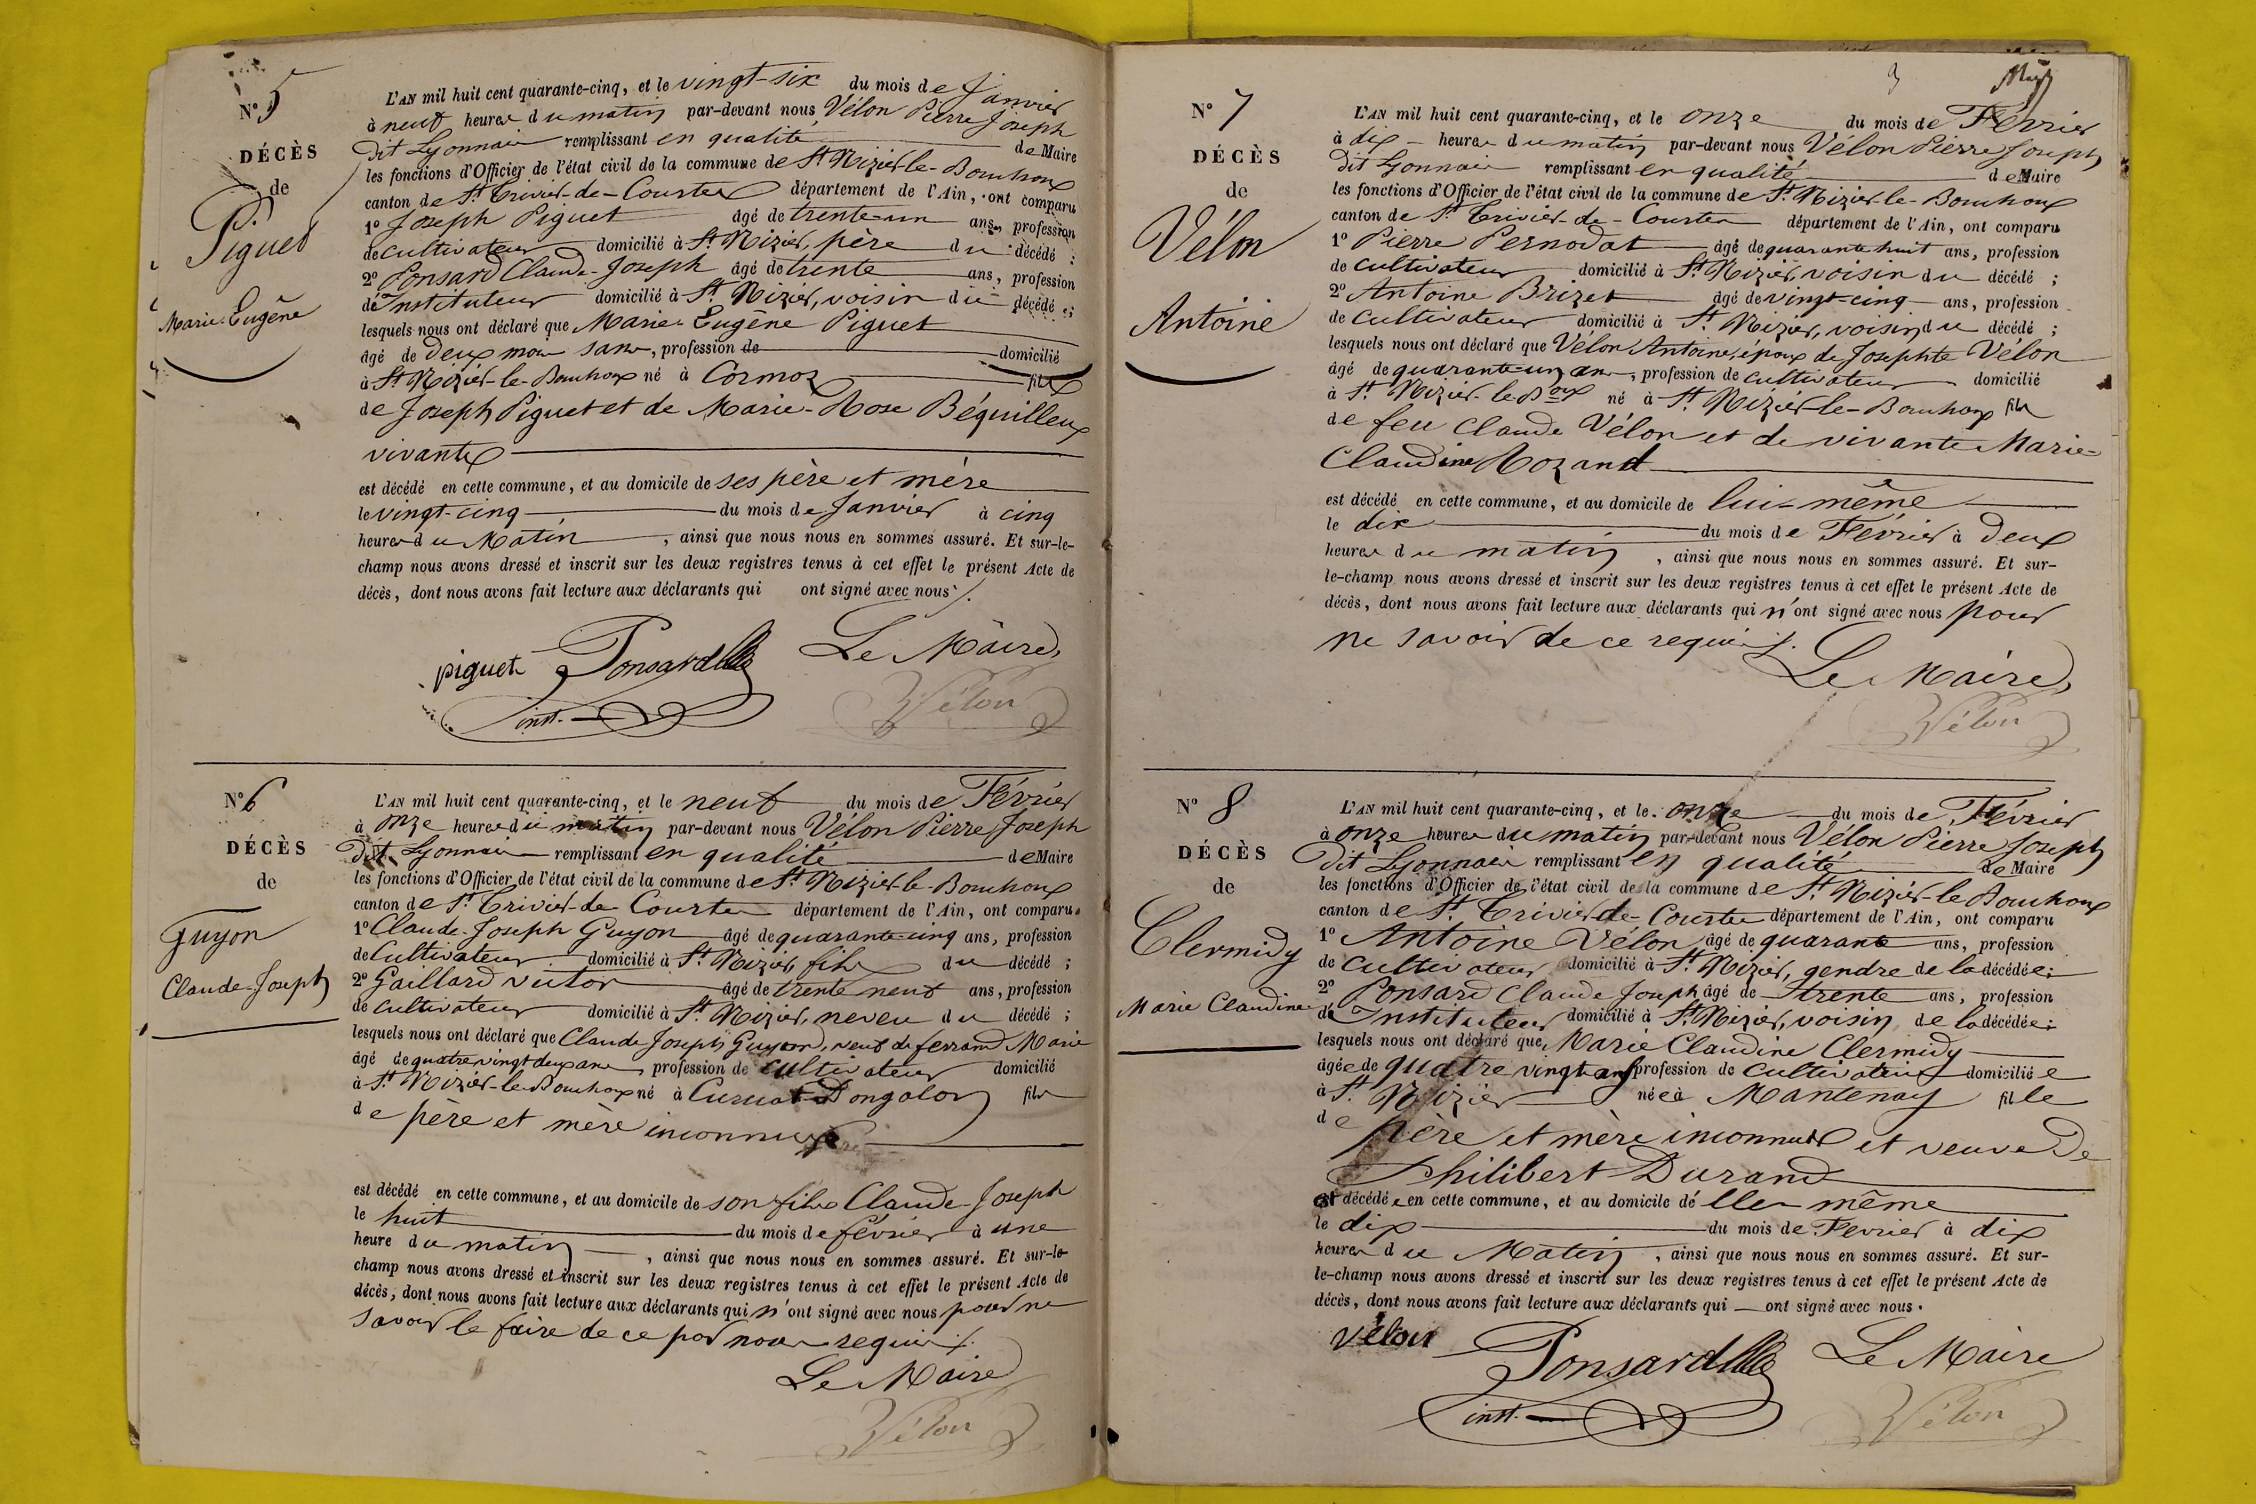 N° 5
DÉCÈS
de
Piguet
Marie-Eugêne
L'AN mil huit cent quarante-cinq, et le vingt-six du mois de Janvier
à neuf heures du matin par-devant nous Vélon Pierre Joseph
dit Lyonnais remplissant en qualité de Maire
les fonctions d'Officier de l'état civil de la commune de St Nizier-le-Bouchoux
canton de St Trivier-de-Courtes département de l'Ain, ont comparu
1° Joseph Piguet âgé de trente-un ans, profession
de cultivateur domicilié à St Nizier, père du décédé ;
2° Ponsard Claude-Joseph âgé de trente ans, profession
de Instituteur domicilié à St Nizier, voisin du décédé ;
lesquels nous ont déclaré que Marie-Eugêne Piguet
âgé de deux mois sans, profession de domicilié
à St Nizier-le-Bouchoux né à Cormoz fils
de Joseph Piguet et de Marie-Rose Béquilleux
vivants
est décédé en cette commune, et au domicile de ses père et mère
le vingt-cinq du mois de Janvier à cinq
heures du Matin, ainsi que nous nous en sommes assuré. Et sur-le-
champ nous avons dressé et inscrit sur les deux registres tenus à cet effet le présent Acte de
décès, dont nous avons fait lecture aux déclarants qui ont signé avec nous.
piguet Ponsard Le Maire,
inst. Vélon
N° 6
DÉCÈS
de
Guyon
Claude-Joseph
L'AN mil huit cent quarante-cinq, et le neuf du mois de Février
à onze heures du matin par-devant nous Vélon Pierre Joseph
dit Lyonnais remplissant en qualité de Maire
les fonctions d'Officier de l'état civil de la commune de St Nizier-le-Bouchoux
canton de St Trivier-de-Courtes département de l'Ain, ont comparu
1° Claude-Joseph Guyon âgé de quarante-cinq ans, profession
de Cultivateur domicilié à St Nizier, fils du décédé ;
2° Gaillard victor âgé de trente neuf ans, profession
de cultivateur domicilié à St Nizier, neveu du décédé ;
lesquels nous ont déclaré que Claude Joseph Guyon, veuf de ferrand Marie
âgé de quatre vingt deux ans, profession de cultivateur domicilié
à St Nizier-le-Bouchoux né à Curciat-Dongalon fils
de père et mère inconnus
est décédé en cette commune, et au domicile de son fils Claude-Joseph
le huit du mois de février à une
heure du matin, ainsi que nous nous en sommes assuré. Et sur-le-
champ nous avons dressé et inscrit sur les deux registres tenus à cet effet le présent Acte de
décès, dont nous avons fait lecture aux déclarants qui n'ont signé avec nous pour ne
savoir le faire de ce par nous requis.
Le Maire
Vélon
3
N° 7
DÉCÈS
de
Vélon
Antoine
L'AN mil huit cent quarante-cinq, et le onze du mois de Février
à dix heures du matin par-devant nous Vélon Pierre Joseph
dit Lyonnais remplissant en qualité de Maire
les fonctions d'Officier de l'état civil de la commune de St Nizier-le-Bouchoux
canton de St Trivier-de-Courtes département de l'Ain, ont comparu
1° Pierre Pernodat âgé de quarante huit ans, profession
de cultivateur domicilié à St Nizier, voisin du décédé ;
2° Antoine Brizet âgé de vingt-cinq ans, profession
de cultivateur domicilié à St Nizier, voisin du décédé ;
lesquels nous ont déclaré que Vélon Antoine, époux de Josephte Vélon
âgé de quarante-un ans, profession de cultivateur domicilié
à St Nizier-le-Boux né à St Nizier-le-Bouchoux fils
de feu Claude Vélon et de vivante Marie-
Claudine Rozand
est décédé en cette commune, et au domicile de lui-même
le dix du mois de Février à deux
heures du matin, ainsi que nous nous en sommes assuré. Et sur-
le-champ nous avons dressé et inscrit sur les deux registres tenus à cet effet le présent Acte de
décès, dont nous avons fait lecture aux déclarants qui n'ont signé avec nous pour
ne savoir de ce requis.
Le Maire,
Vélon
N° 8
DÉCÈS
de
Clermidy
Marie Claudine
L'AN mil huit cent quarante-cinq, et le onze du mois de Février
à onze heures du matin par-devant nous Vélon Pierre Joseph
dit Lyonnais remplissant en qualité de Maire
les fonctions d'Officier de l'état civil de la commune de St Nizier-le-Bouchoux
canton de St Trivier-de-Courtes département de l'Ain, ont comparu
1° Antoine Vélon âgé de quarante ans, profession
de cultivateur domicilié à St Nizier, gendre de la décédée ;
2° Ponsard Claude Joseph âgé de trente ans, profession
de Instituteur domicilié à St Nizier, voisin de la décédée ;
lesquels nous ont déclaré que Marie Claudine Clermidy
âgée de quatre vingt ans profession de cultivateur domiciliée
à St Nizier née à Mantenay fille
de père et mère inconnus et veuve de
Philibert Durand
est décédée en cette commune, et au domicile d'elle même
le dix du mois de Février à dix
heures du Matin, ainsi que nous nous en sommes assuré. Et sur-
le-champ nous avons dressé et inscrit sur les deux registres tenus à cet effet le présent Acte de
décès, dont nous avons fait lecture aux déclarants qui ont signé avec nous.
vélon Ponsard Le Maire
inst. Vélon